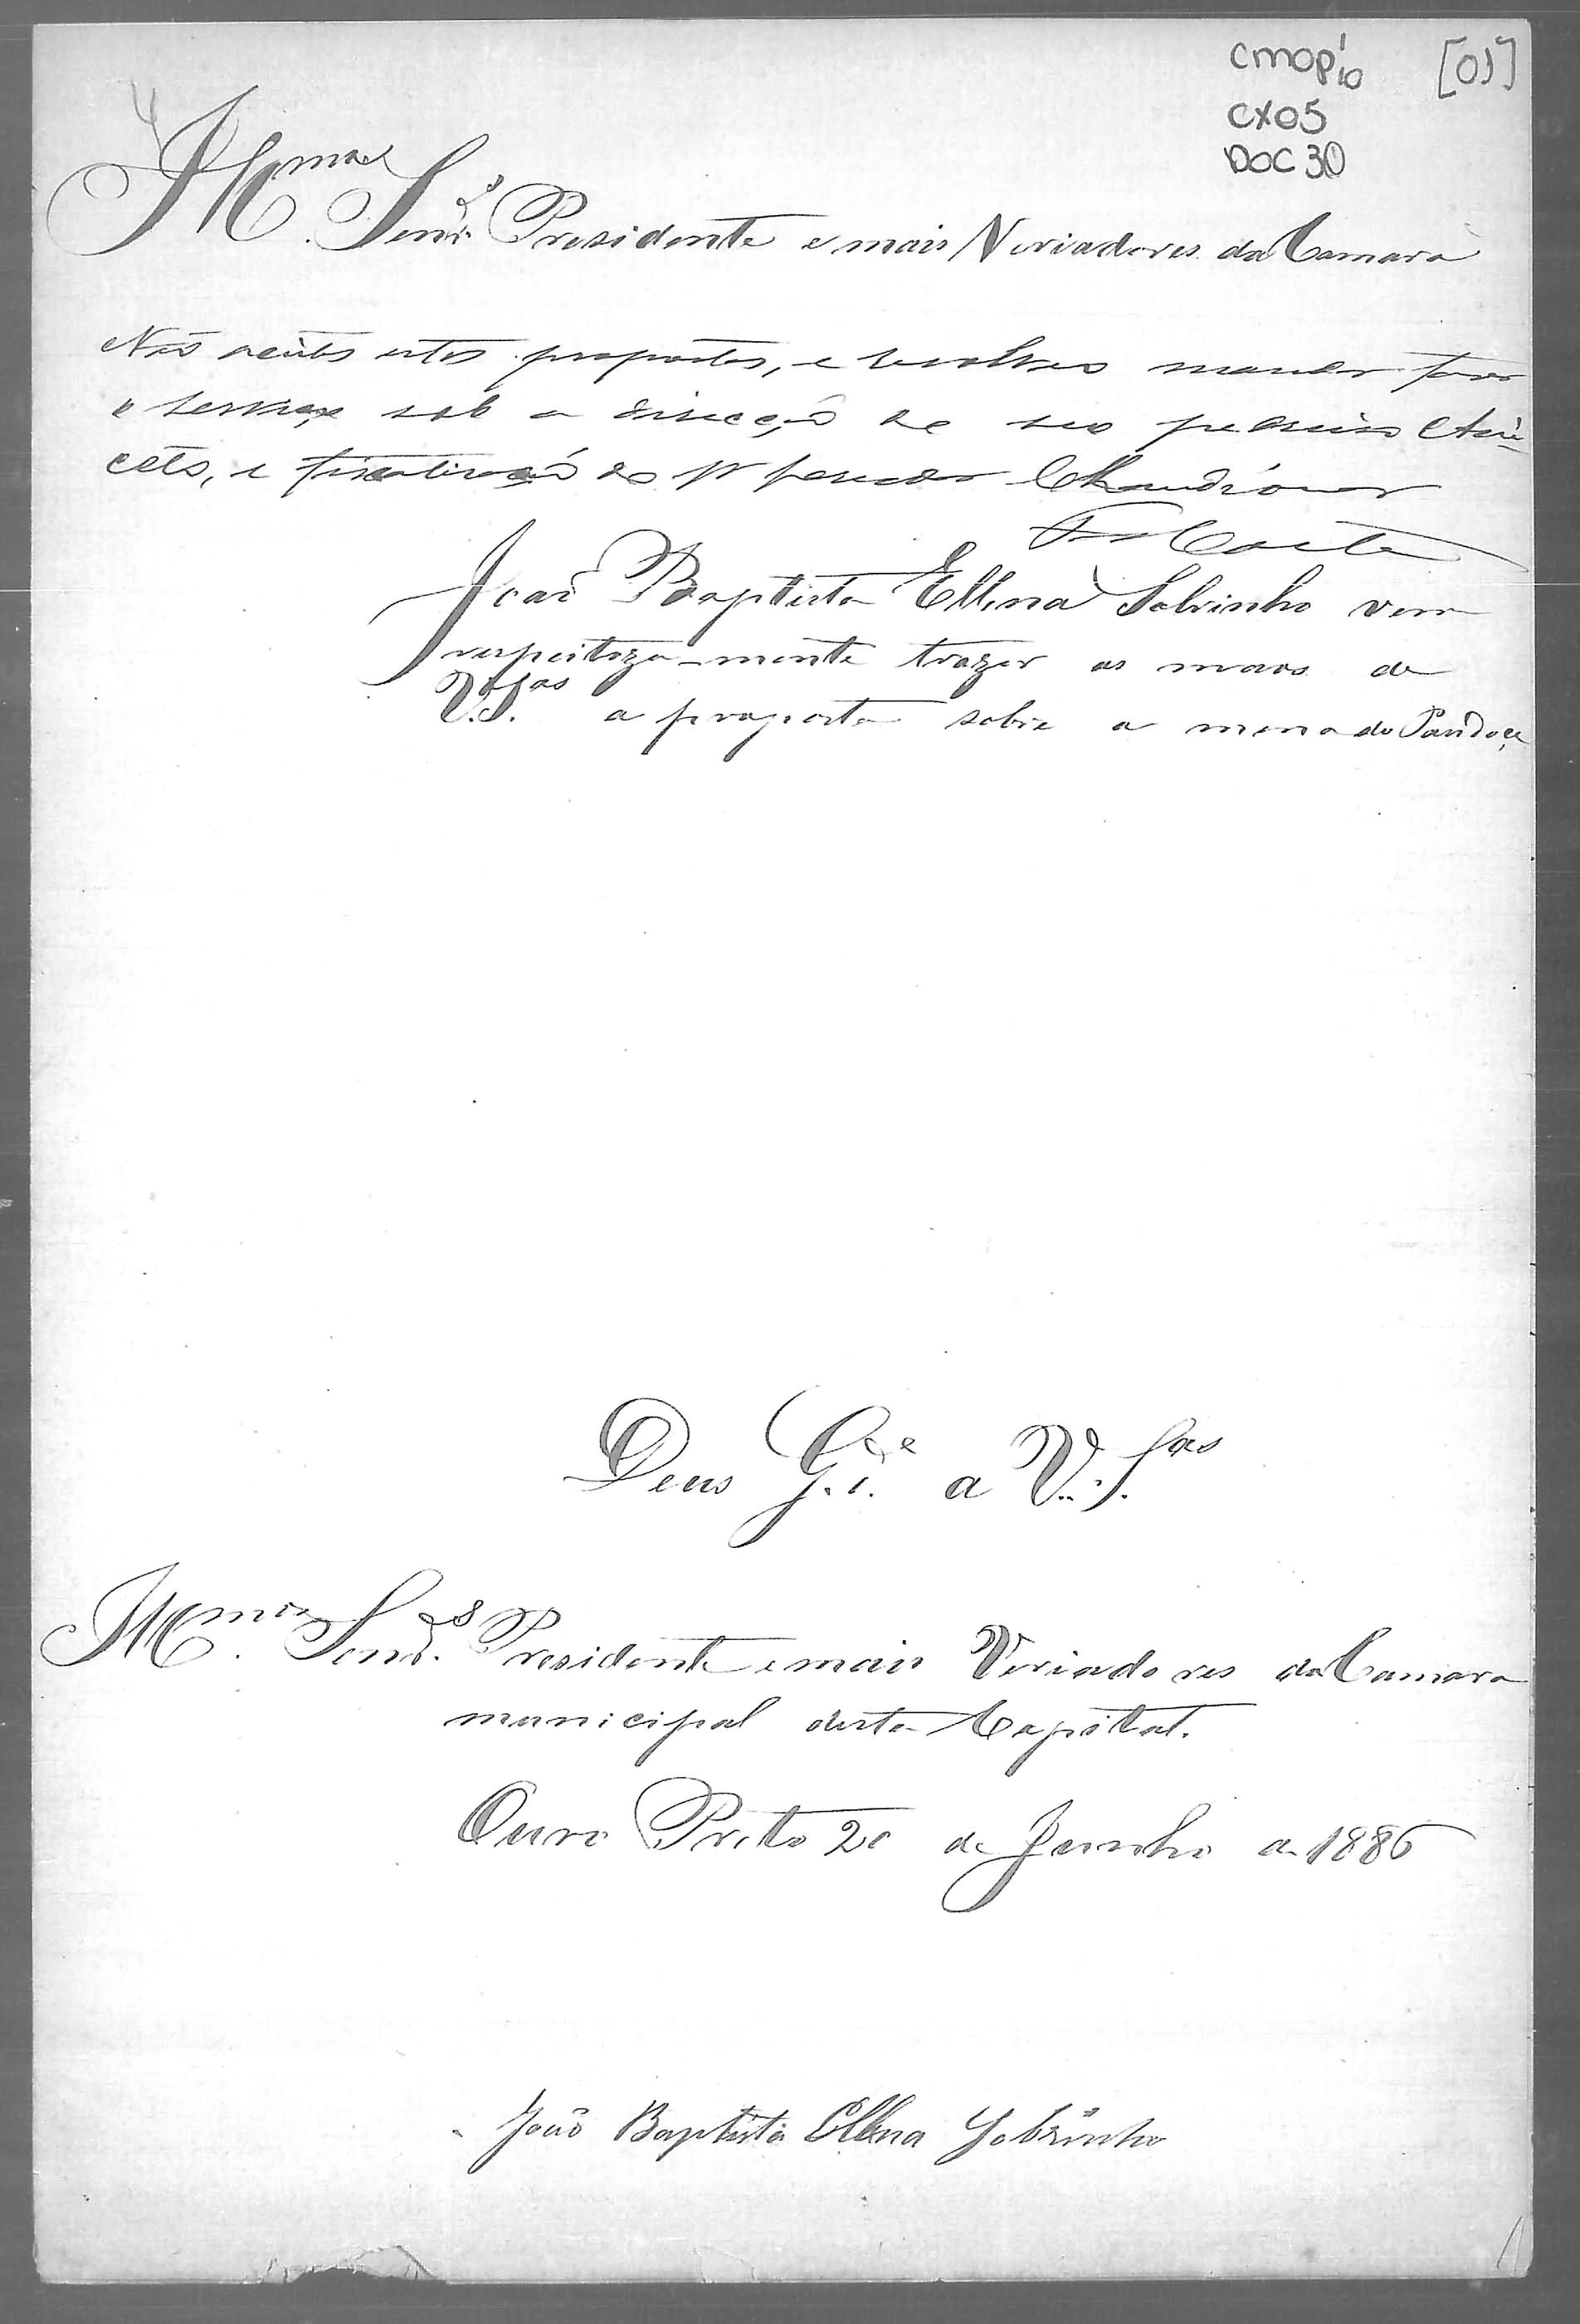 CMOPi10 [01]
CX05
DOC 30
Illmos Sendrs Presidente e mais Veriadores da Camara
Não aceito estas propostas, e resolveo mandar fazer
o serviço sob a direcção de seo proprio
e fiscalização do
João Baptista Ellena Sobrinho vem
respeitoza-mente trazer as maos de
V.Sas a proposta sobre a mena do
Deus Gde a V.Sas
Illmos Sendrs Presidente e mais Veriadores da Camara
municipal desta Capital.
Ouro Preto 20 de Junho de 1886
João Baptista Ellena Sobrinho